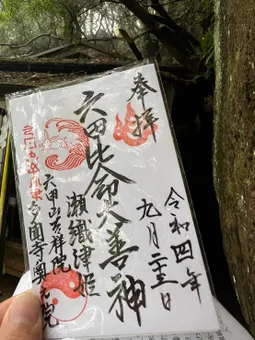 奉拝
六甲比命大善神
瀬織津姫
令和四年
九月二十三日
六甲山吉祥院
多聞寺奥之院